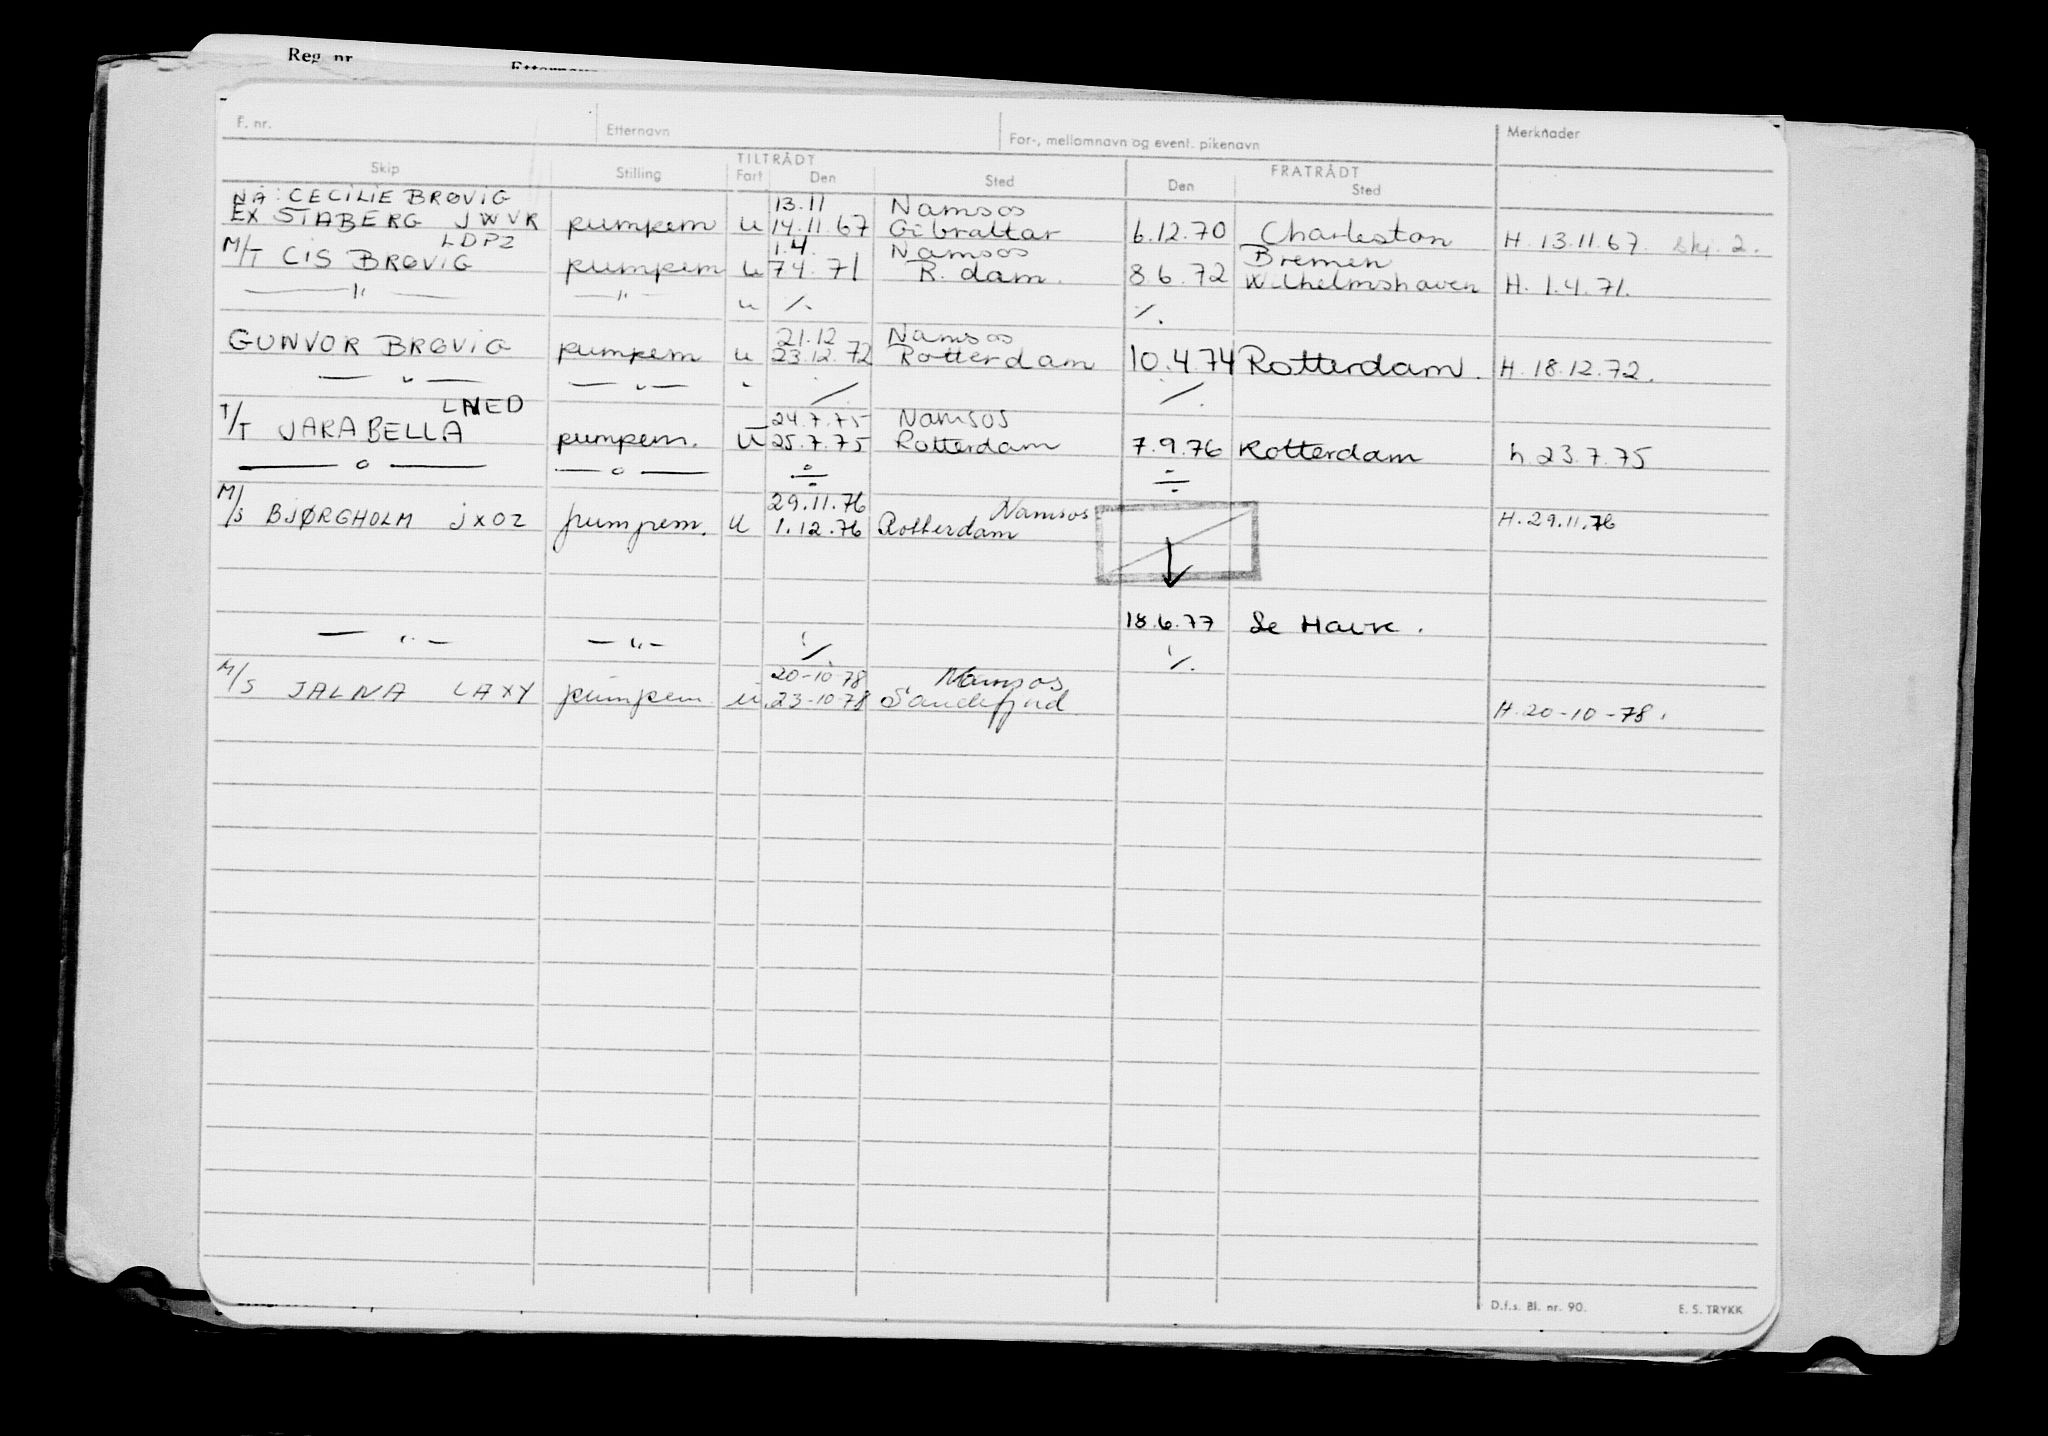 Reg. nr.
F. nr. Etternavn For-, mellomnavn og event. pikenavn Merknader
TILTRÅDT FRATRÅDT
Skip Stilling Fart Den Sted Den Sted
NÅ: CECILIE BRØVIG 13.11 Namsos
EX STABERG JWVR pumpem u 14.11.67 Gibraltar 6.12.70 Charleston H. 13.11.67. skj. 2.
LDPZ 1.4. Namsos Bremen
M/T CIS BRØVIG pumpem u 7.4.71 R.dam. 8.6.72 Wilhelmshaven H. 1.4.71.
— " — — " — u ./. ./.
21.12 Namsos
GUNVOR BRØVIG pumpem u 23.12.72 Rotterdam 10.4.74 Rotterdam. H. 18.12.72.
— " — — " — " ./. ./.
LNED 24.7.75 Namsos
T/T JARABELLA pumpem. u 25.7.75 Rotterdam 7.9.76 Rotterdam h. 23.7.75
— o — — o — ÷ ÷
29.11.76 Namsos
M/S BJØRGHOLM JXOZ pumpem. u 1.12.76 Rotterdam H. 29.11.76
18.6.77 Le Havre.
— " — — " — ./. ./.
20-10-78 Namsos
M/S JALNA LAXY pumpem u. 23-10-78 Sandefjord H. 20-10-78.
D.f.s. Bl. nr. 90. E. S. TRYKK